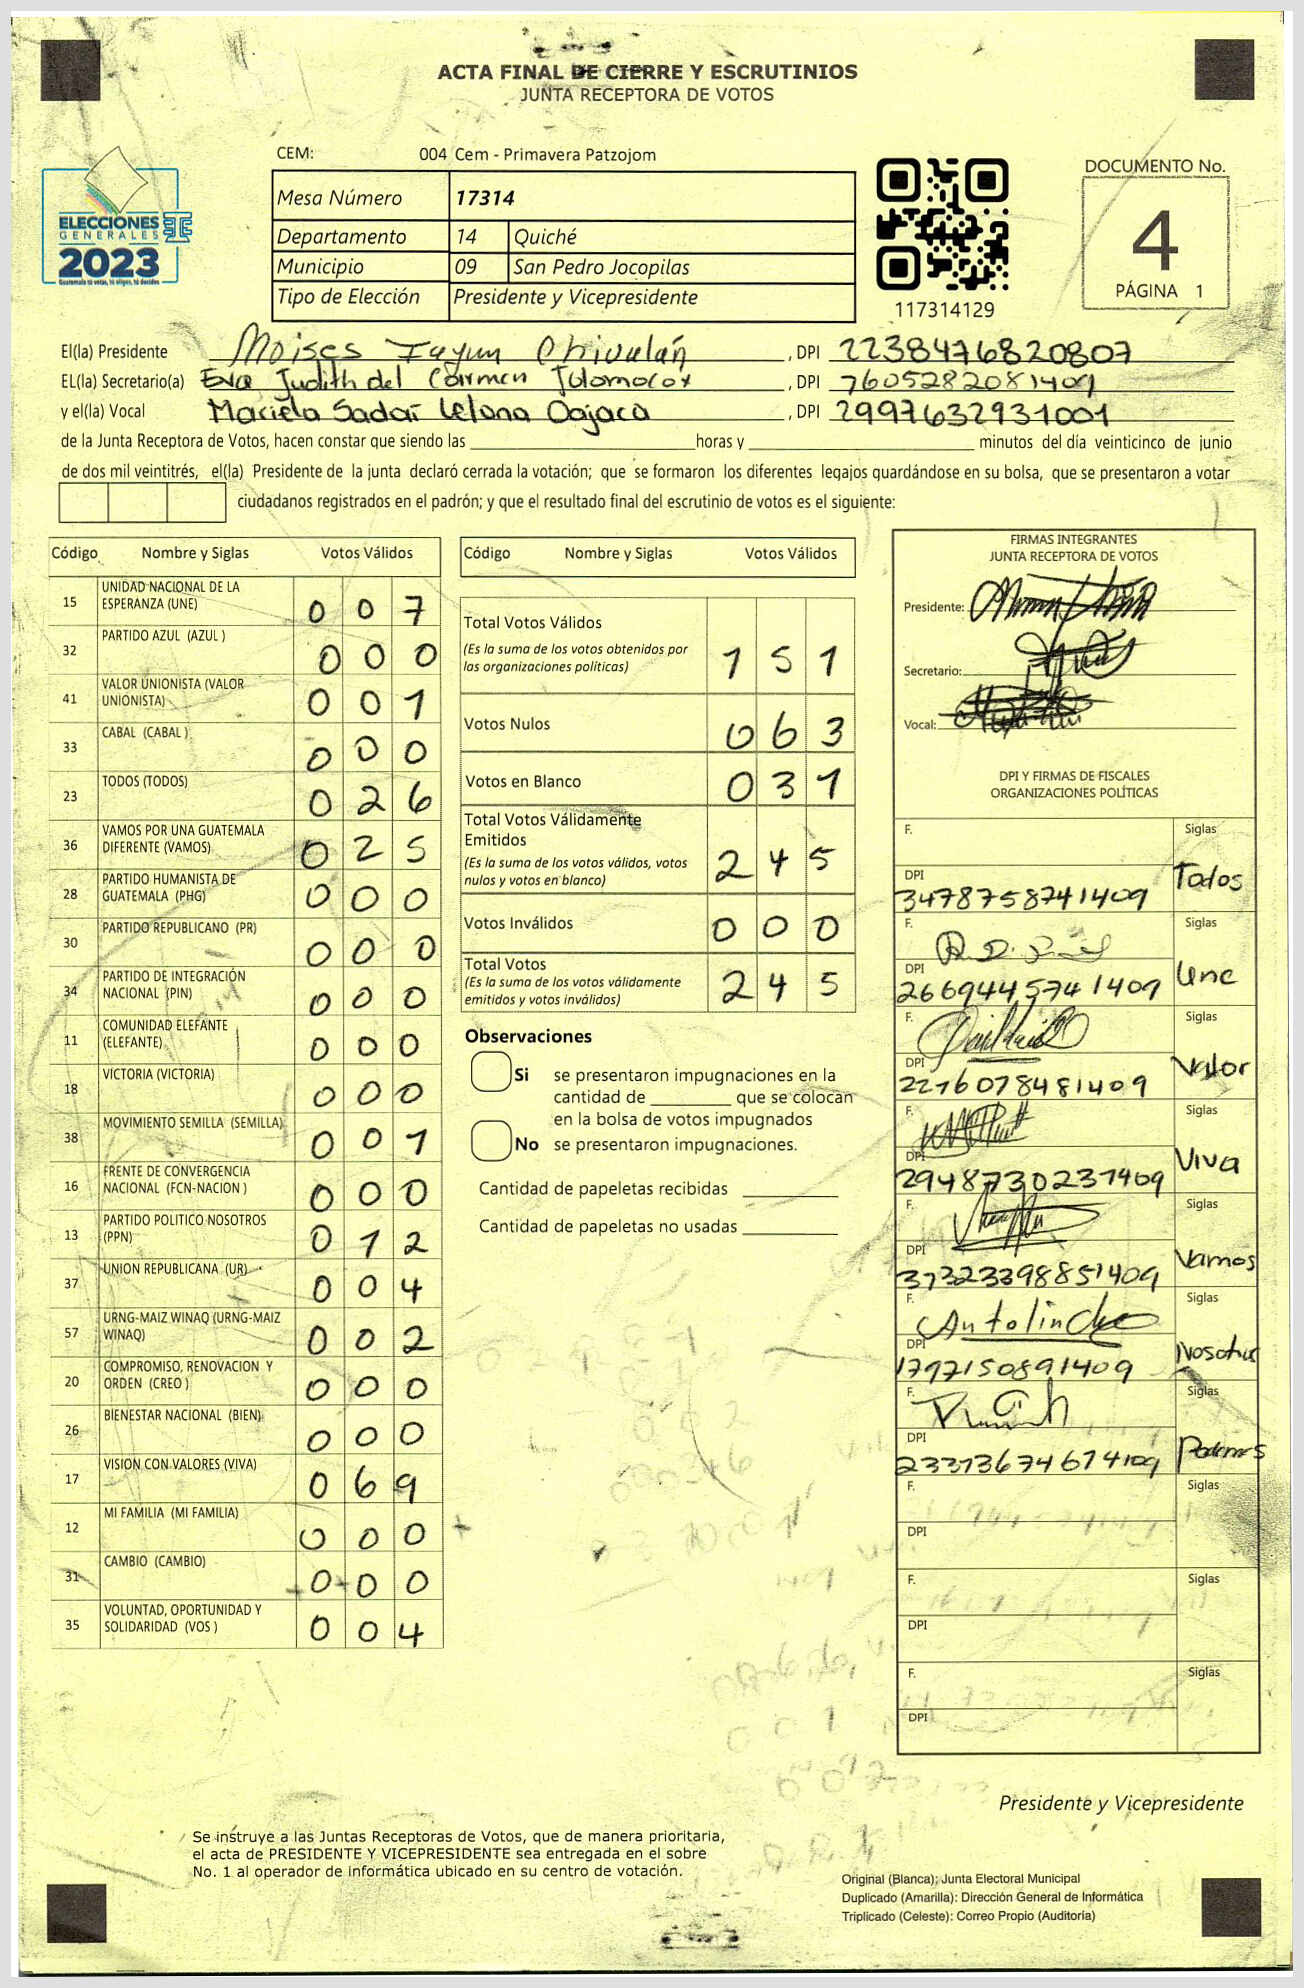 ACTA FINAL DE CIERRE Y ESCRUTINIOS
JUNTA RECEPTORA DE VOTOS
CEM: 004 Cem - Primavera Patzojom
Mesa Número 17314
Departamento 14 Quiché
Municipio 09 San Pedro Jocopilas
Tipo de Elección Presidente y Vicepresidente
ELECCIONES
GENERALES
2023
117314129
DOCUMENTO No.
4
PÁGINA 1
El(la) Presidente Moises , DPI 2238476820807
EL(la) Secretario(a) Eva Judith del Carmen , DPI 7605282081409
y el(la) Vocal Sadaí , DPI 2997632931001
de la Junta Receptora de Votos, hacen constar que siendo las horas y minutos del día veinticinco de junio
de dos mil veintitrés, el(la) Presidente de la junta declaró cerrada la votación; que se formaron los diferentes legajos guardándose en su bolsa, que se presentaron a votar
ciudadanos registrados en el padrón; y que el resultado final del escrutinio de votos es el siguiente:
Código Nombre y Siglas Votos Válidos
15 UNIDAD NACIONAL DE LA ESPERANZA (UNE) 0 0 7
32 PARTIDO AZUL (AZUL ) 0 0 0
41 VALOR UNIONISTA (VALOR UNIONISTA) 0 0 1
33 CABAL (CABAL ) 0 0 0
23 TODOS (TODOS) 0 2 6
36 VAMOS POR UNA GUATEMALA DIFERENTE (VAMOS) 0 2 5
28 PARTIDO HUMANISTA DE GUATEMALA (PHG) 0 0 0
30 PARTIDO REPUBLICANO (PR) 0 0 0
34 PARTIDO DE INTEGRACIÓN NACIONAL (PIN) 0 0 0
11 COMUNIDAD ELEFANTE (ELEFANTE) 0 0 0
18 VICTORIA (VICTORIA) 0 0 0
38 MOVIMIENTO SEMILLA (SEMILLA) 0 0 1
16 FRENTE DE CONVERGENCIA NACIONAL (FCN-NACION ) 0 0 0
13 PARTIDO POLITICO NOSOTROS (PPN) 0 1 2
37 UNION REPUBLICANA (UR) 0 0 4
57 URNG-MAIZ WINAQ (URNG-MAIZ WINAQ) 0 0 2
20 COMPROMISO, RENOVACION Y ORDEN (CREO ) 0 0 0
26 BIENESTAR NACIONAL (BIEN) 0 0 0
17 VISION CON VALORES (VIVA) 0 6 9
12 MI FAMILIA (MI FAMILIA) 0 0 0
31 CAMBIO (CAMBIO) 0 0 0
35 VOLUNTAD, OPORTUNIDAD Y SOLIDARIDAD (VOS ) 0 0 4
Código Nombre y Siglas Votos Válidos
Total Votos Válidos 1 5 1
(Es la suma de los votos obtenidos por
las organizaciones políticas)
Votos Nulos 0 6 3
Votos en Blanco 0 3 1
Total Votos Válidamente
Emitidos 2 4 5
(Es la suma de los votos válidos, votos
nulos y votos en blanco)
Votos Inválidos 0 0 0
Total Votos 2 4 5
(Es la suma de los votos válidamente
emitidos y votos inválidos)
Observaciones
Si se presentaron impugnaciones en la
cantidad de que se colocan
en la bolsa de votos impugnados
No se presentaron impugnaciones.
Cantidad de papeletas recibidas
Cantidad de papeletas no usadas
FIRMAS INTEGRANTES
JUNTA RECEPTORA DE VOTOS
Presidente:
Secretario:
Vocal:
DPI Y FIRMAS DE FISCALES
ORGANIZACIONES POLÍTICAS
F. Siglas
DPI Todos
3478758741409
F. Siglas
DPI Une
2669445741409
F. Siglas
DPI Valor
2276078481409
F. Siglas
DPI Viva
2948730231409
F. Siglas
DPI Vamos
37323398851409
F. Siglas
DPI Nosotros
1797150891409
F. Siglas
DPI Podemos
F. Siglas
DPI
F. Siglas
DPI
F. Siglas
DPI
Presidente y Vicepresidente
Se instruye a las Juntas Receptoras de Votos, que de manera prioritaria,
el acta de PRESIDENTE Y VICEPRESIDENTE sea entregada en el sobre
No. 1 al operador de informática ubicado en su centro de votación.
Original (Blanca): Junta Electoral Municipal
Duplicado (Amarilla): Dirección General de Informática
Triplicado (Celeste): Correo Propio (Auditoría)